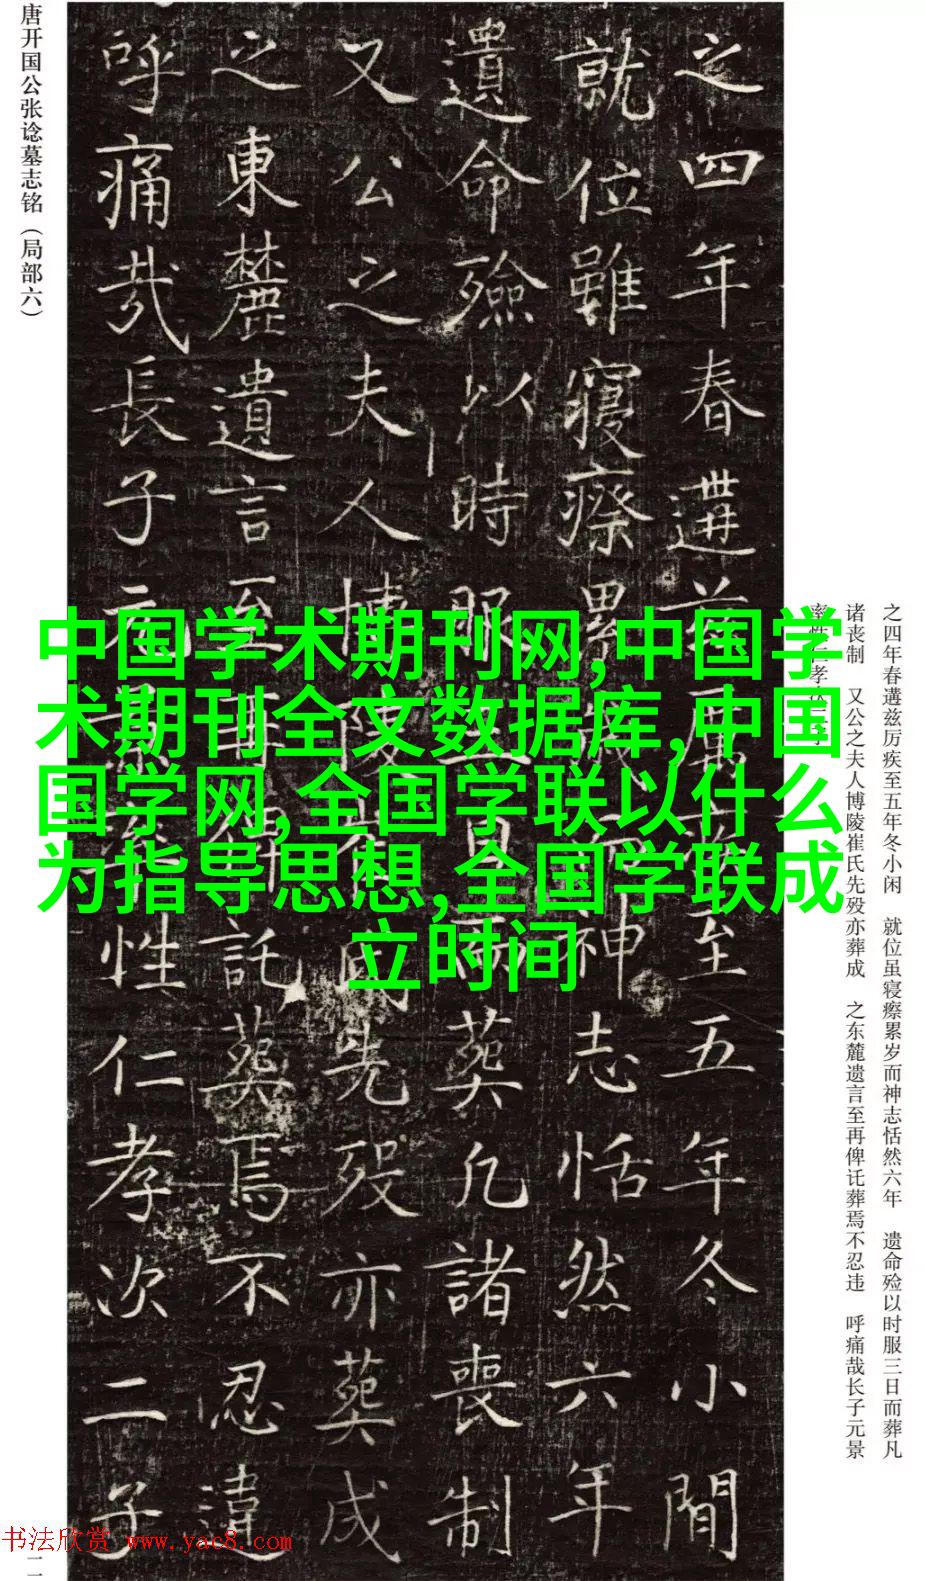 唐开国公张谂墓志铭（局部六）
之四年春遘茲至五年冬小閒
就位雖寢瘵累神志恬然六年
遺命殮以時服葬凡諸喪制
又公之夫人博陵先歿亦葬成
之東麓遺言至再託葬焉不忍違
呼痛哉長子元性仁孝次二子
中国学术期刊网,中国学
术期刊全文数据库,中国
国学网,全国学联以什么
为指导思想,全国学联成
立时间
之四年春遘兹厉疾至五年冬小闲　就位虽寝瘵累岁而神志恬然六年　遗命殓以时服三日而葬凡
诸丧制　又公之夫人博陵崔氏先殁亦葬成　之东麓遗言至再俾讬葬焉不忍违　呼痛哉长子元景
率孝
书法欣赏 www.yac8.com